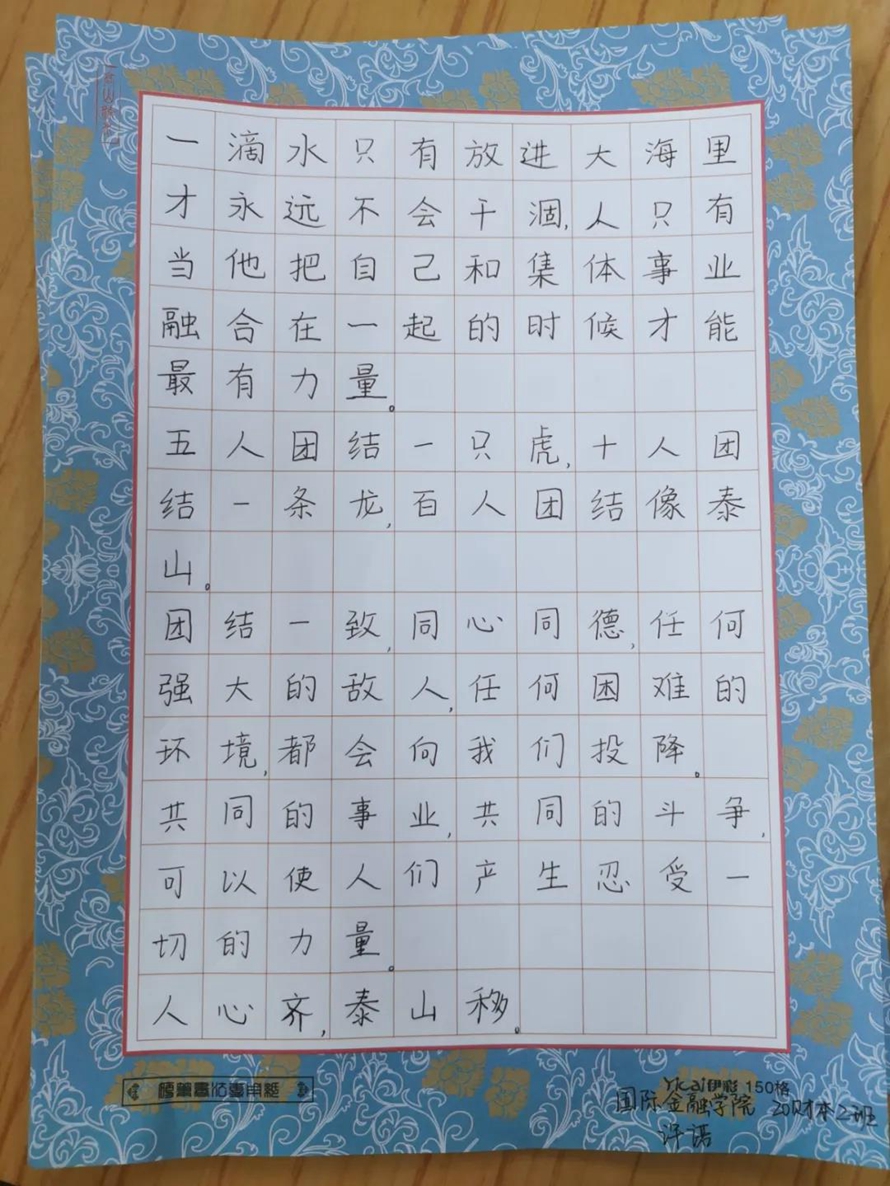 一滴水只有放进大海里
才永远不会干涸,人只有
当他把自己和集体事业
融合在一起的时候才能
最有力量。
五人团结一只虎,十人团
结一条龙,百人团结像泰
山。
团结一致,同心同德,任何
强大的敌人,任何困难的
环境,都会向我们投降。
共同的事业,共同的斗争,
可以使人们产生忍受一
切的力量。
人心齐,泰山移。
硬筆書法專用紙
Yicai伊彩 150格
国际金融学院 20财本2班
许诺